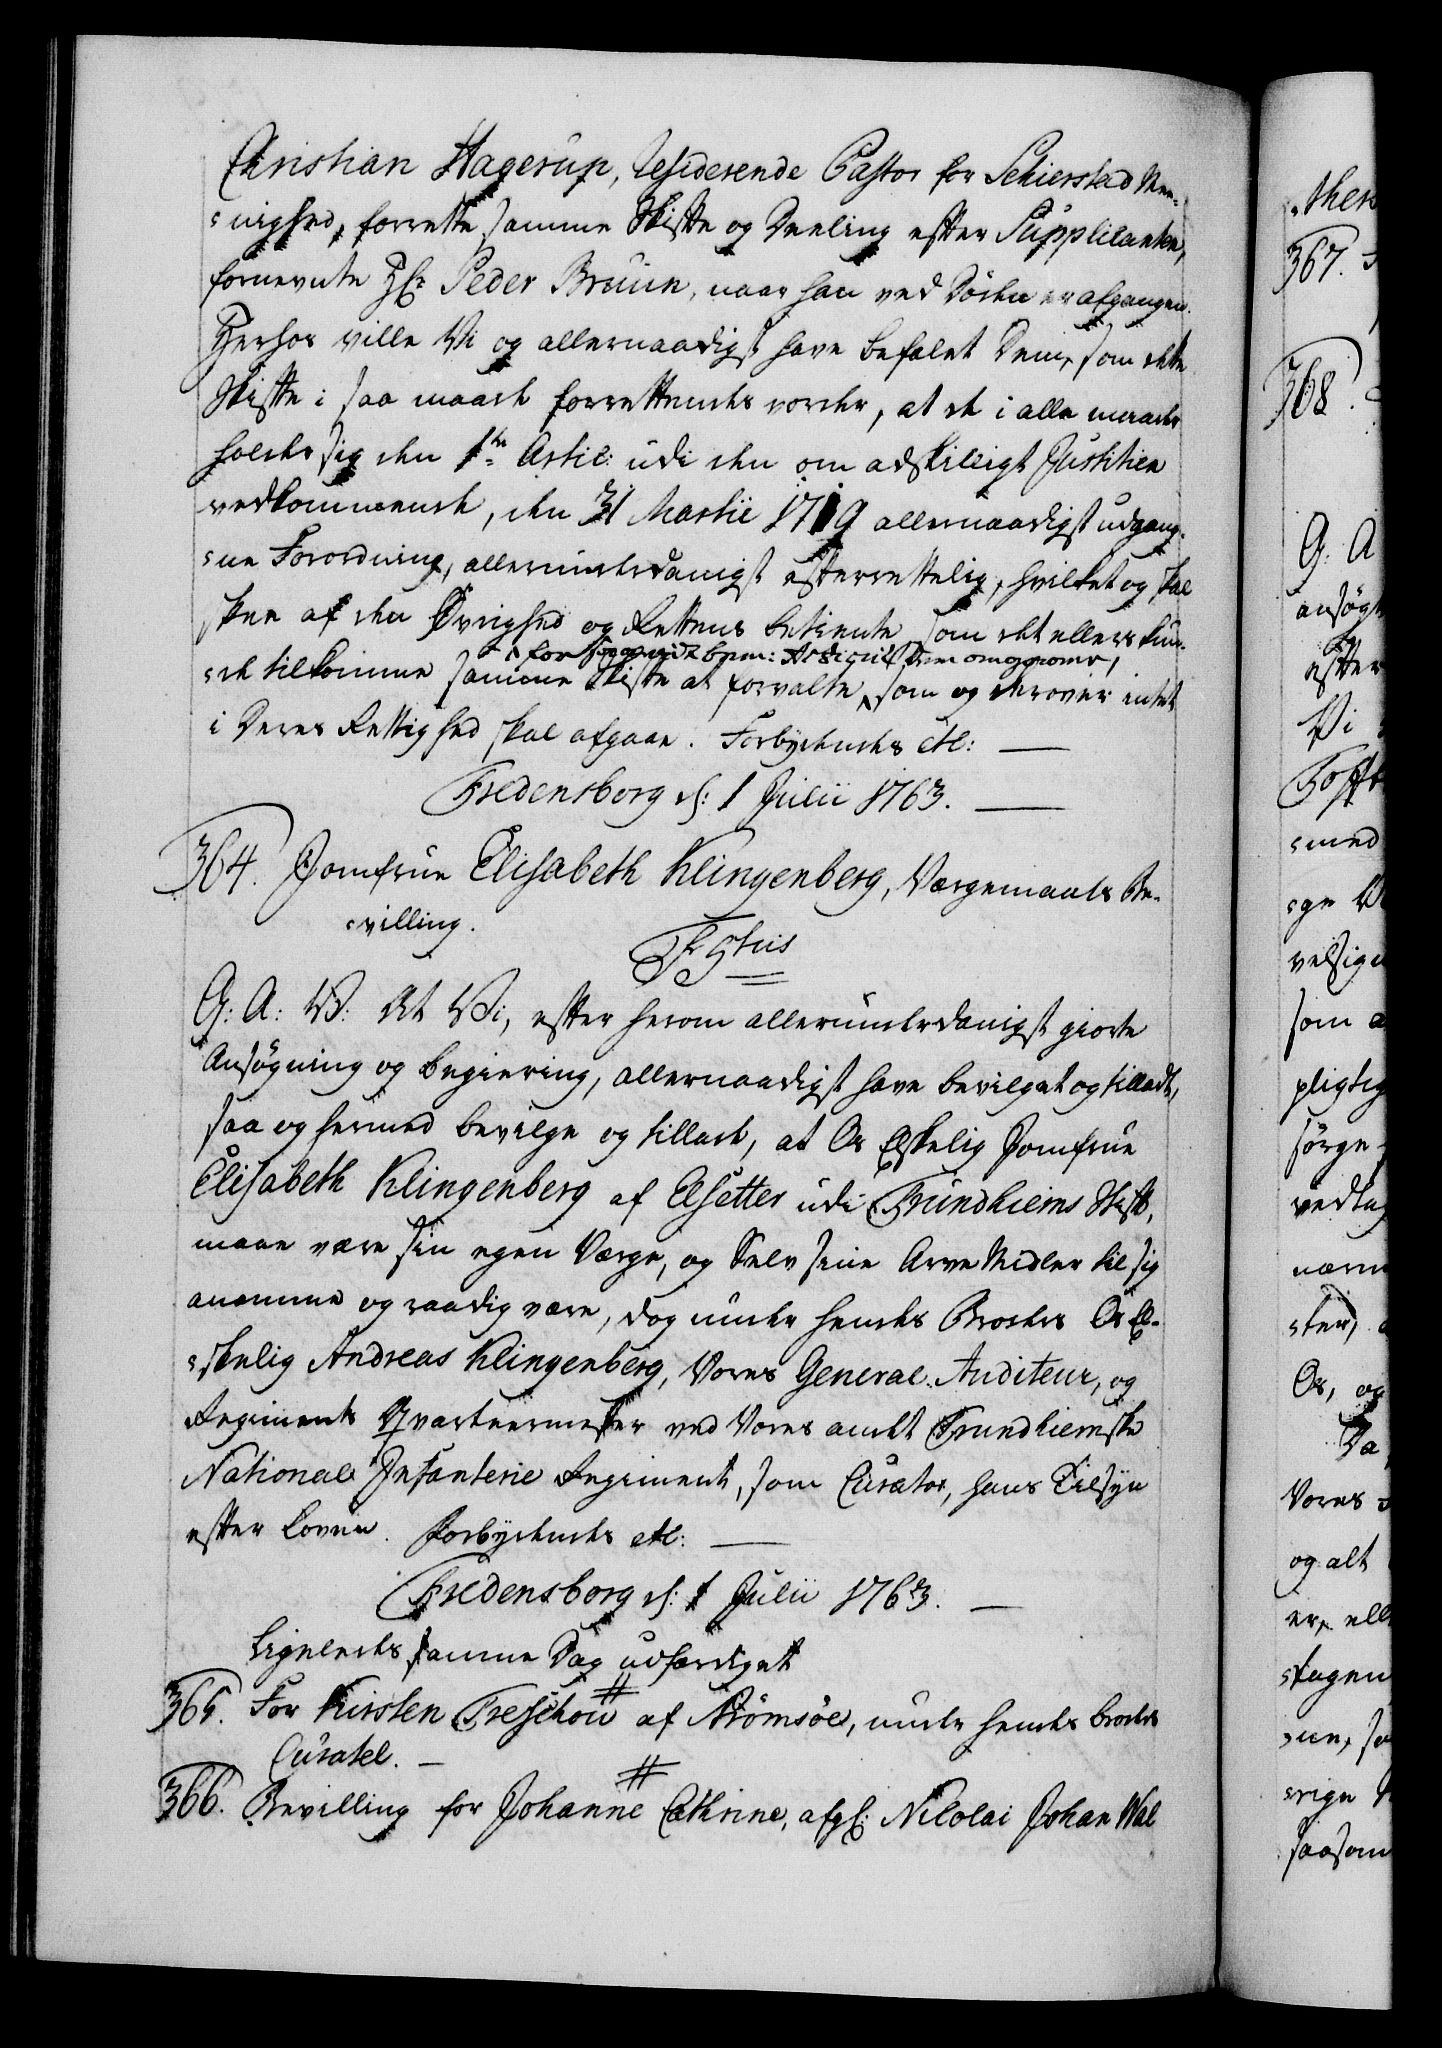 Christian Hagerup, residerende Pastor for Schiersted Me-
nighed, forrette samme Skifte og Deeling efter Supplicanten,
fornevnte Hr. Peder Bruun, naar han ved Døden er afgangen.
Herhos ville Vi og allernaadigst have befalet Dem, som dette
Skifte i saa maade forrettendes vorder, at de i alle maader
holder sig den 1te Articl: udi den om adskilligt Justitien
vedkommende, den 31 Martii 1719 allernaadigst udgang-
ne Forordning, allerunderdanigst efterrettelig, hvilket og skal
skee af den Øvrighed og Rettens betiente som det ellers kun-
for saavidt bem: Articul Dem omgaaer,
de tilkomme samme Skifte at forvalte, som og derover intet
i Deres Rettighed skal afgaae. Forbydendes etc:
Fredensborg d: 1 Julii 1763.
364. Jomfrue Elisabeth Klingenberg, Værgemaals Be-
villing.
F 5tus
G: A: V: At Vi, efter herom allerunderdanigst giorte
Ansøgning og begiering, allernaadigst have bevilget og tilladt,
saa og hermed bevilge og tillade, at Os Elskelig Jomfrue
Elisabeth Klingenberg af Elsetter udi Trundhiems Stift,
maae være sin egen Værge, og Selv sine Arve Midler til sig
anamme og raadig være, dog under hendes Broders Os El-
skelig Andreas Klingenberg, Vores General Auditeur, og
Regiments Qvarteermester ved Vores andet Trundhiemske
National Infanterie Regiment, som Curator, hans Tilsyn
efter Loven. Forbydendes etc:
Fredensborg d: 1 Julii 1763.
Ligeledes samme Dag udfærdiget
365. For Kirsten Treschow af Strömsöe, under hendes broders
Curatel.
366. Bevilling for Johanne Cathrine, afgl: Nicolai Johan Wal
367.
368.
G: A
ansøgt
efter
Vi
med
som
pligtig
sørge
Os, og
Vores
og alt
saasom